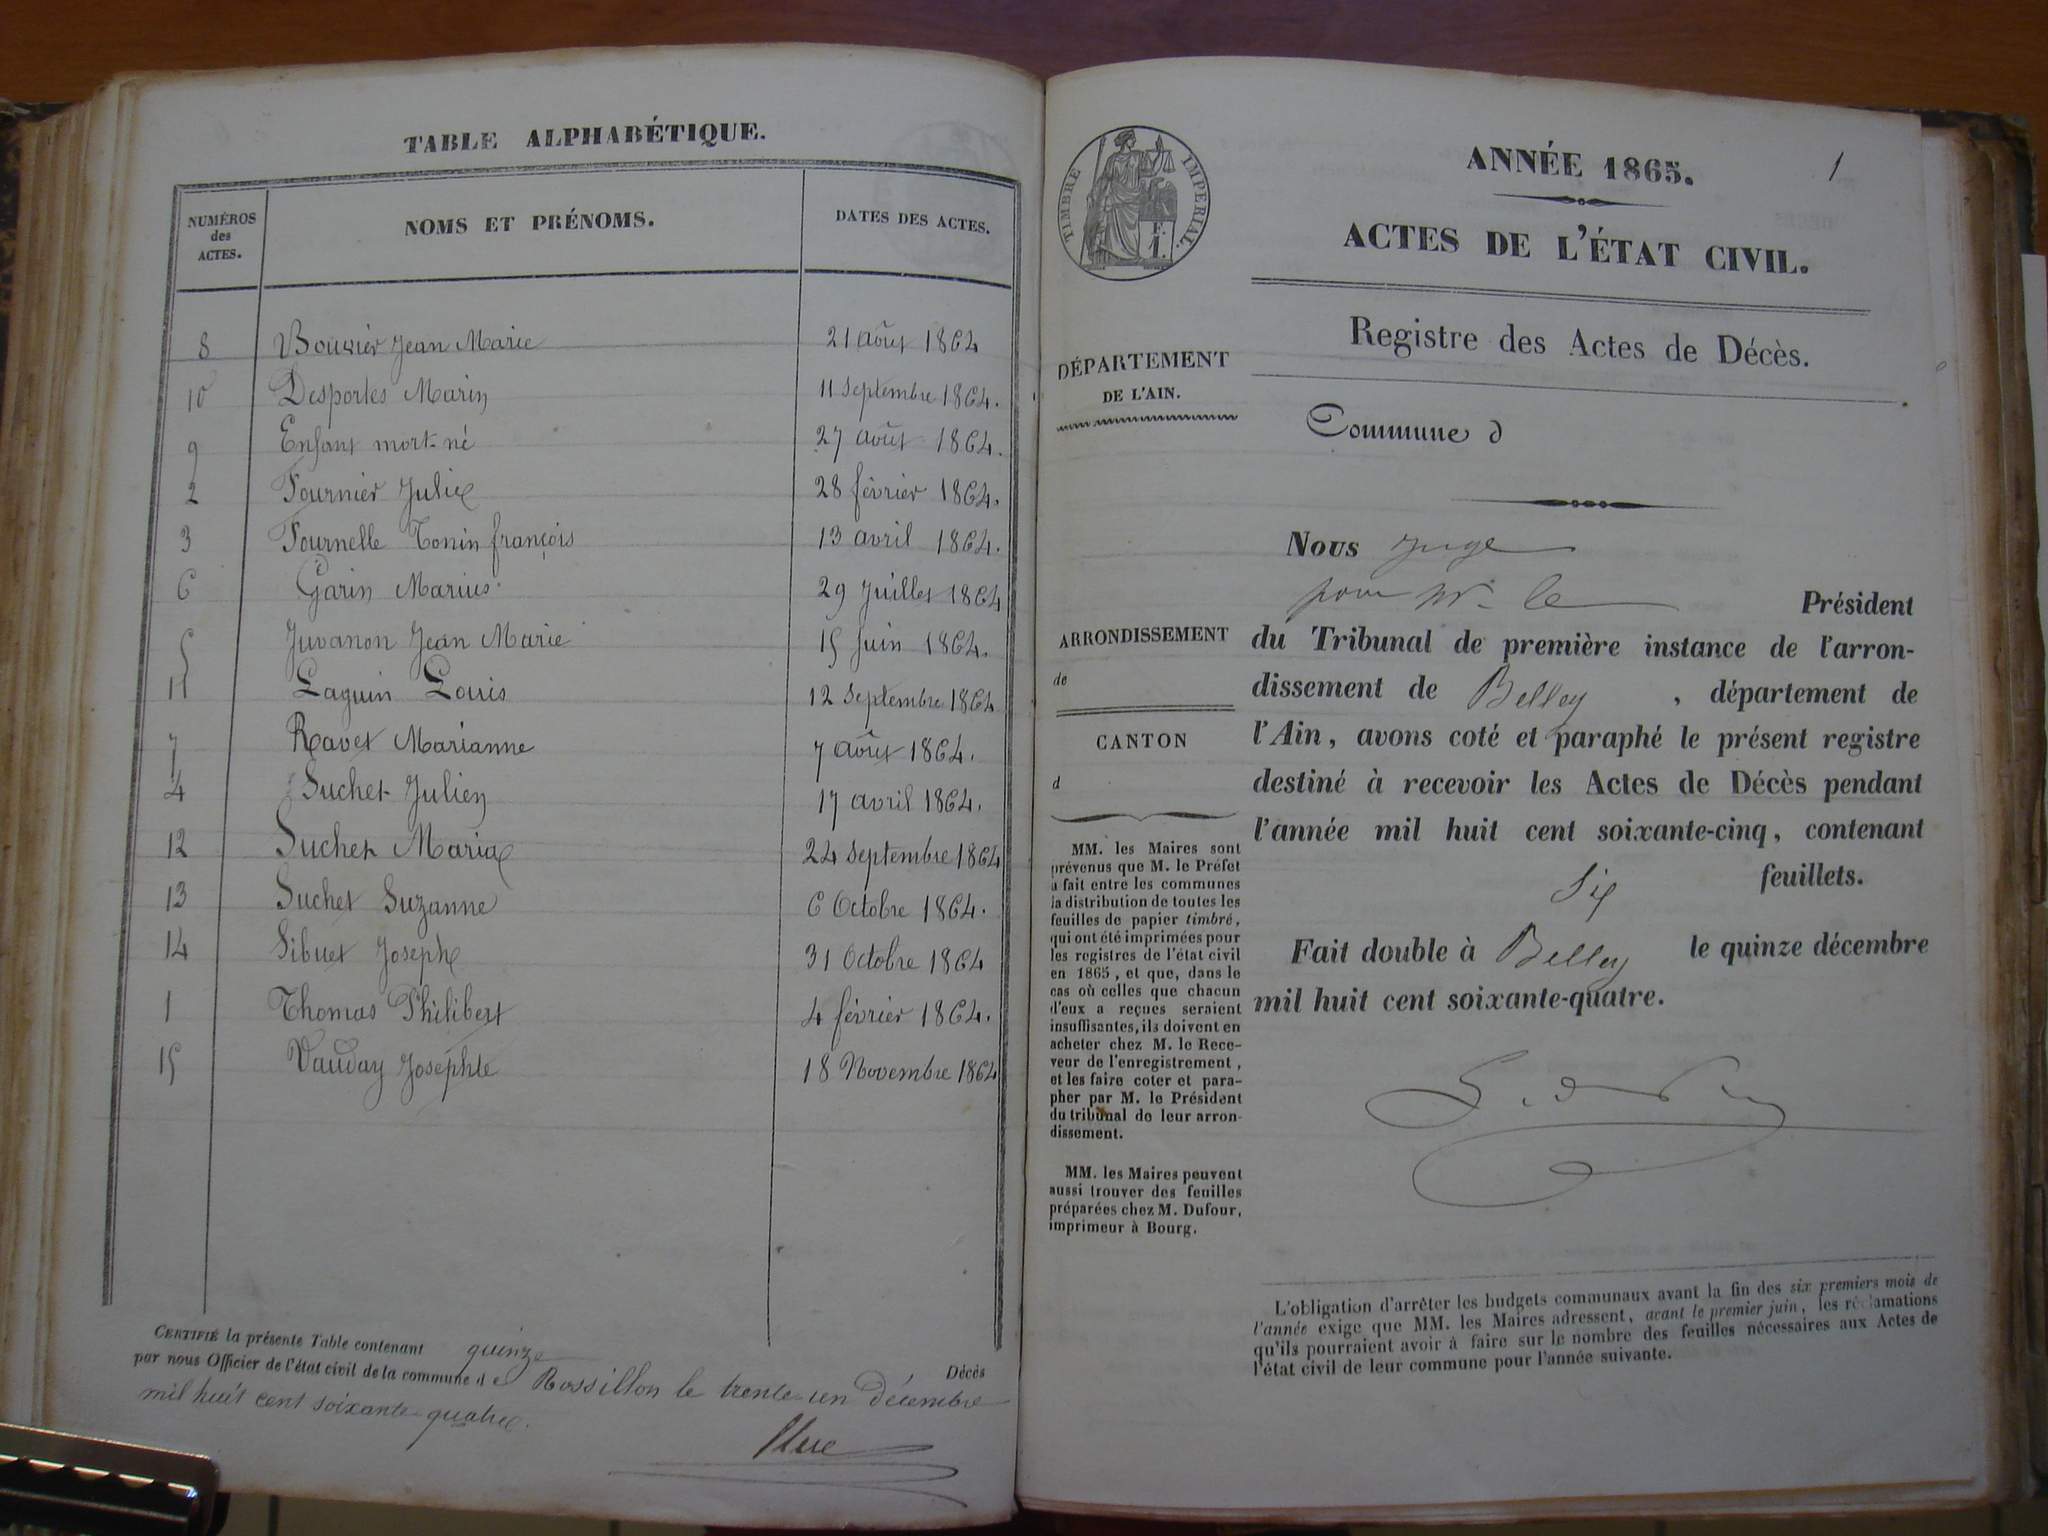 TABLE ALPHABÉTIQUE.
NUMÉROS des ACTES.
NOMS ET PRÉNOMS.
DATES DES ACTES.
8 Bouvier Jean Marie 21 août 1864
10 Desportes Marin 11 septembre 1864.
9 Enfant mort-né 27 août 1864.
2 Fournier Julie 28 février 1864.
3 Fournelle Tonin françois 13 avril 1864.
6 Garin Marius 29 Juillet 1864
5 Juvanon Jean Marie 15 Juin 1864.
11 Laguin Louis 12 Septembre 1864
7 Ravet Marianne 7 août 1864.
4 Suchet Julien 17 avril 1864.
12 Suchet Maria 24 septembre 1864
13 Suchet Suzanne 6 Octobre 1864.
14 Sibuet Joseph 31 Octobre 1864
1 Thomas Philibert 4 février 1864.
15 Vauday Josephte 18 Novembre 1864
CERTIFIÉ la présente Table contenant quinze Décès
par nous Officier de l'état civil de la commune de Rossillon le trente-un décembre
mil huit cent soixante-quatre.
1
TIMBRE IMPERIAL.
F.
1.
ANNÉE 1865.
ACTES DE L'ÉTAT CIVIL.
Registre des Actes de Décès.
DÉPARTEMENT
DE L'AIN.
Commune d
ARRONDISSEMENT
de
CANTON
d
MM. les Maires sont
prévenus que M. le Préfet
a fait entre les communes
la distribution de toutes les
feuilles de papier timbré,
qui ont été imprimées pour
les registres de l'état civil
en 1865, et que, dans le
cas où celles que chacun
d'eux a reçues seraient
insuffisantes, ils doivent en
acheter chez M. le Rece-
veur de l'enregistrement,
et les faire coter et para-
pher par M. le Président
du tribunal de leur arron-
dissement.
MM. les Maires peuvent
aussi trouver des feuilles
préparées chez M. Dufour,
imprimeur à Bourg.
Nous Juge
pour Mr le Président
du Tribunal de première instance de l'arron-
dissement de Belley, département de
l'Ain, avons coté et paraphé le présent registre
destiné à recevoir les Actes de Décès pendant
l'année mil huit cent soixante-cinq, contenant
Six feuillets.
Fait double à Belley le quinze décembre
mil huit cent soixante-quatre.
L'obligation d'arrêter les budgets communaux avant la fin des six premiers mois de
l'année exige que MM. les Maires adressent, avant le premier juin, les réclamations
qu'ils pourraient avoir à faire sur le nombre des feuilles nécessaires aux Actes de
l'état civil de leur commune pour l'année suivante.